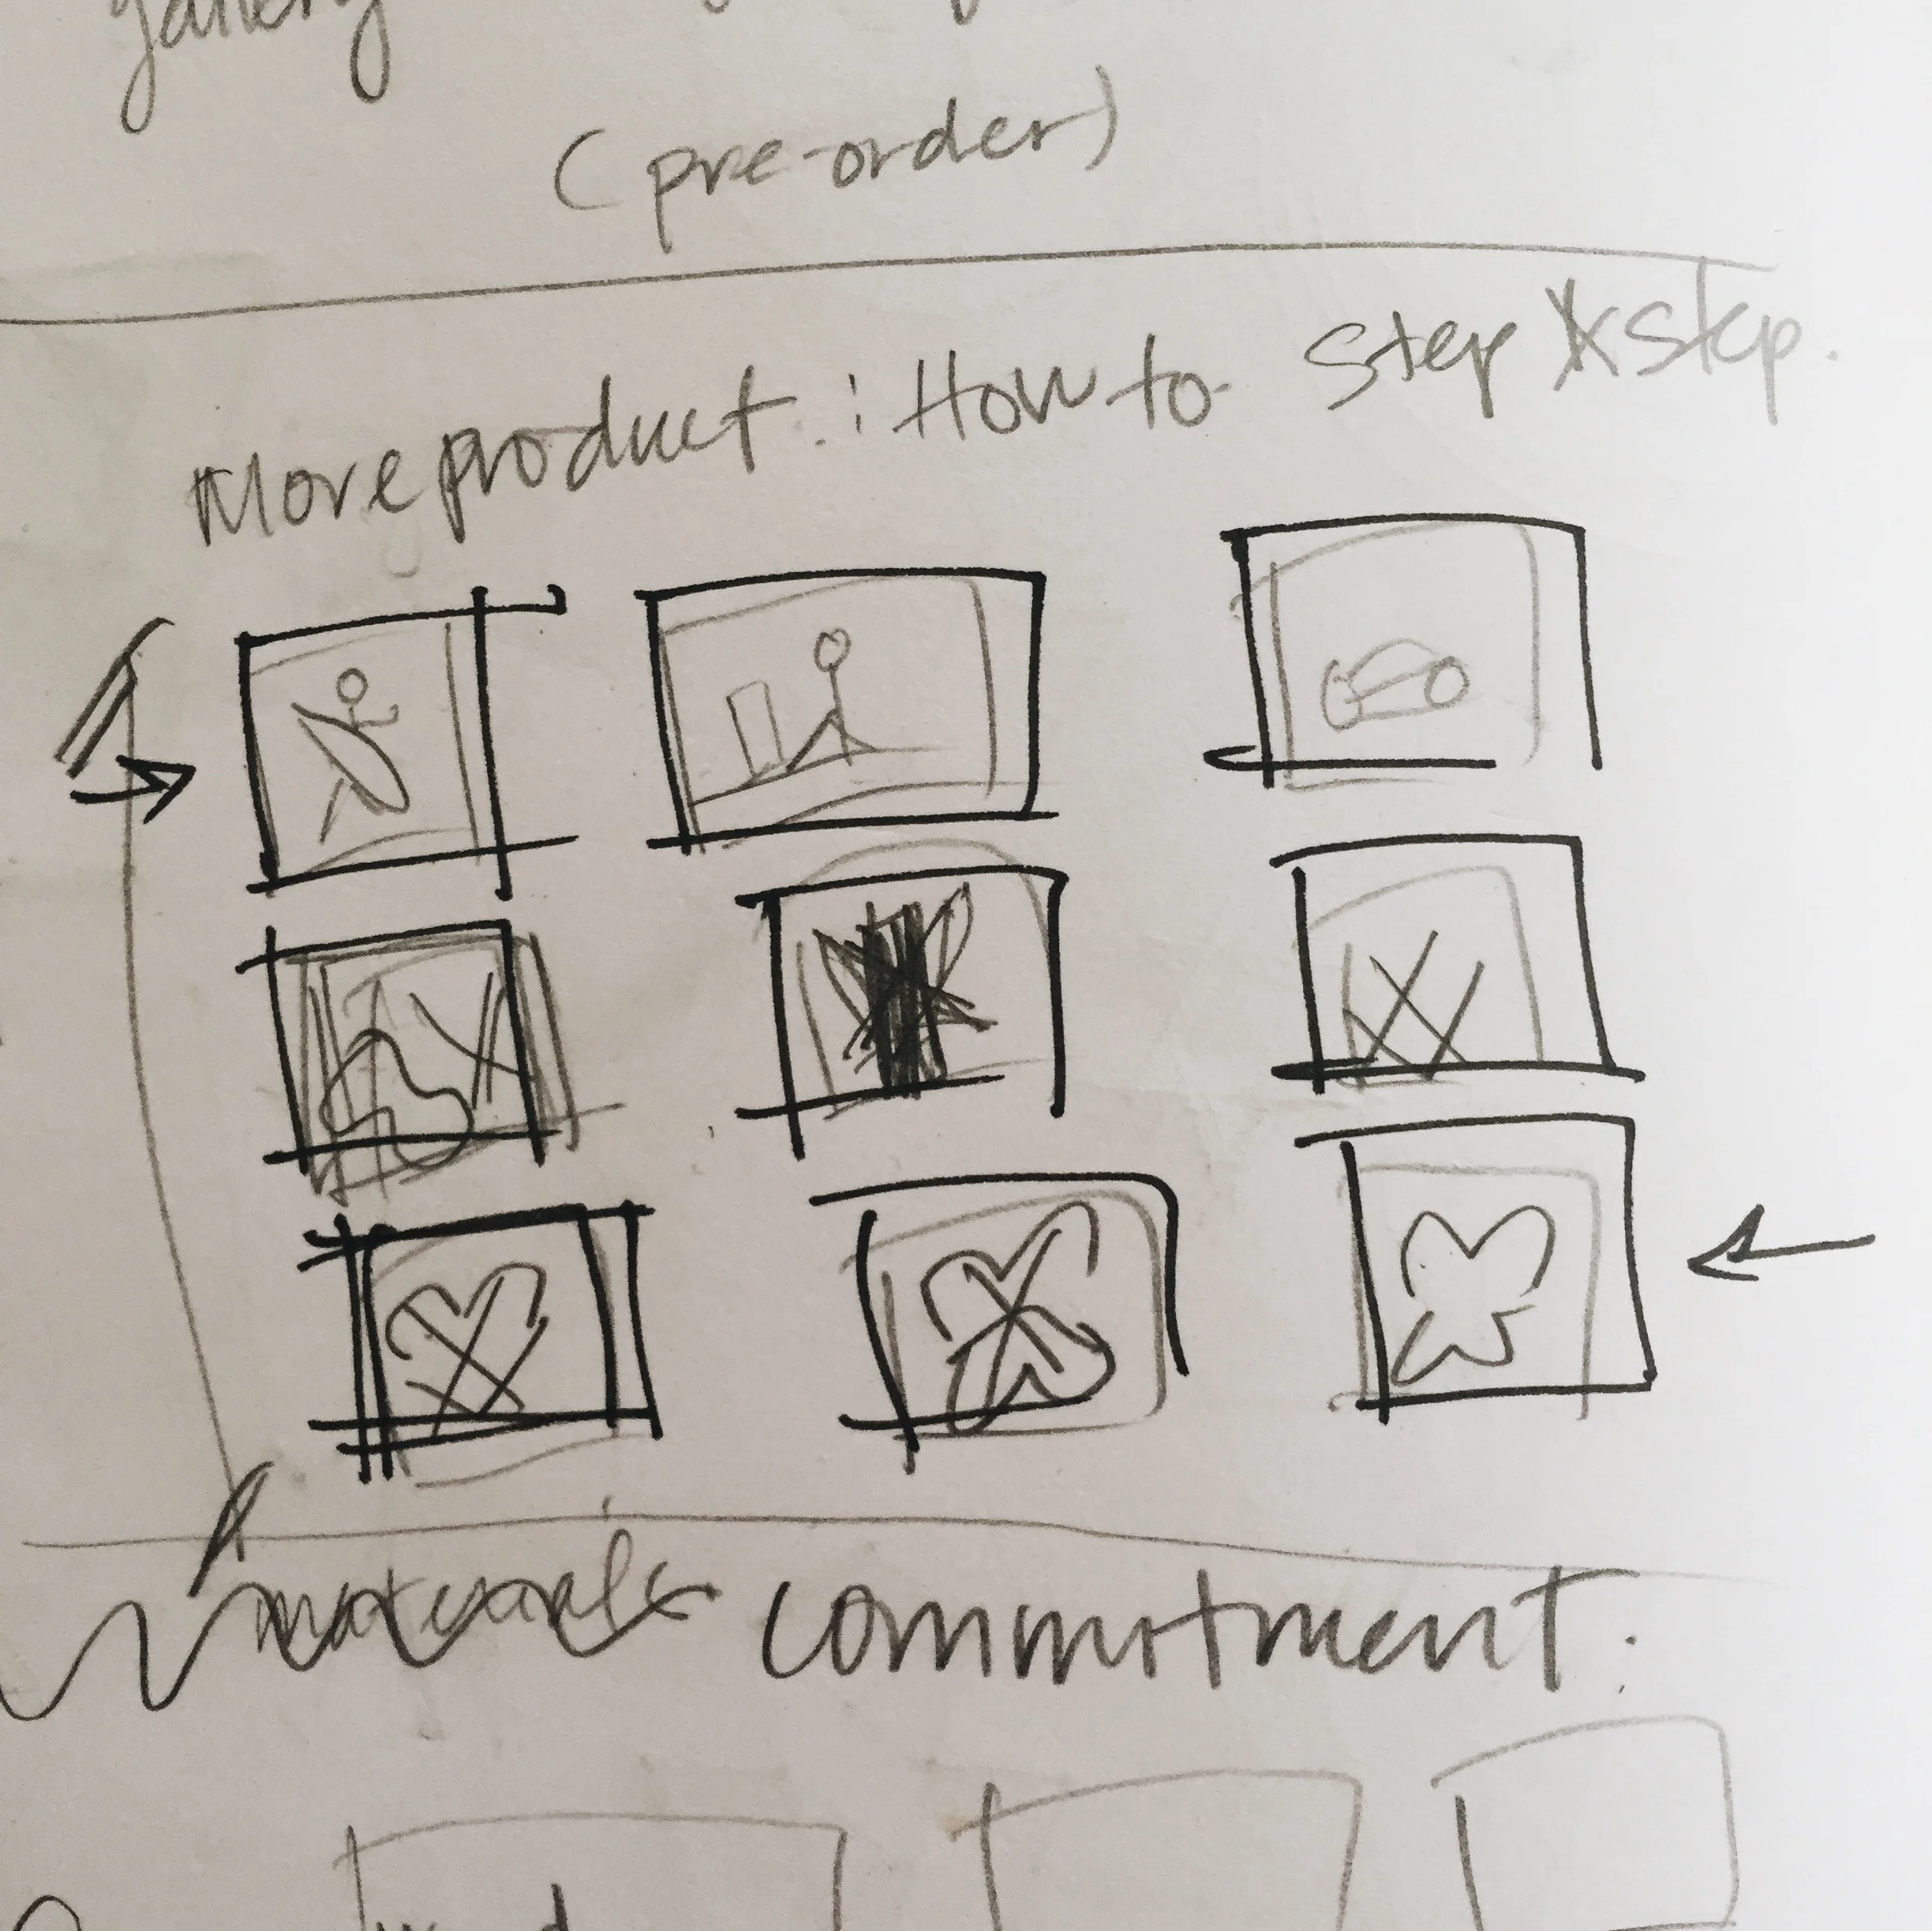 gallery
(pre-order)
More product : How to step X step.
materials commitment.